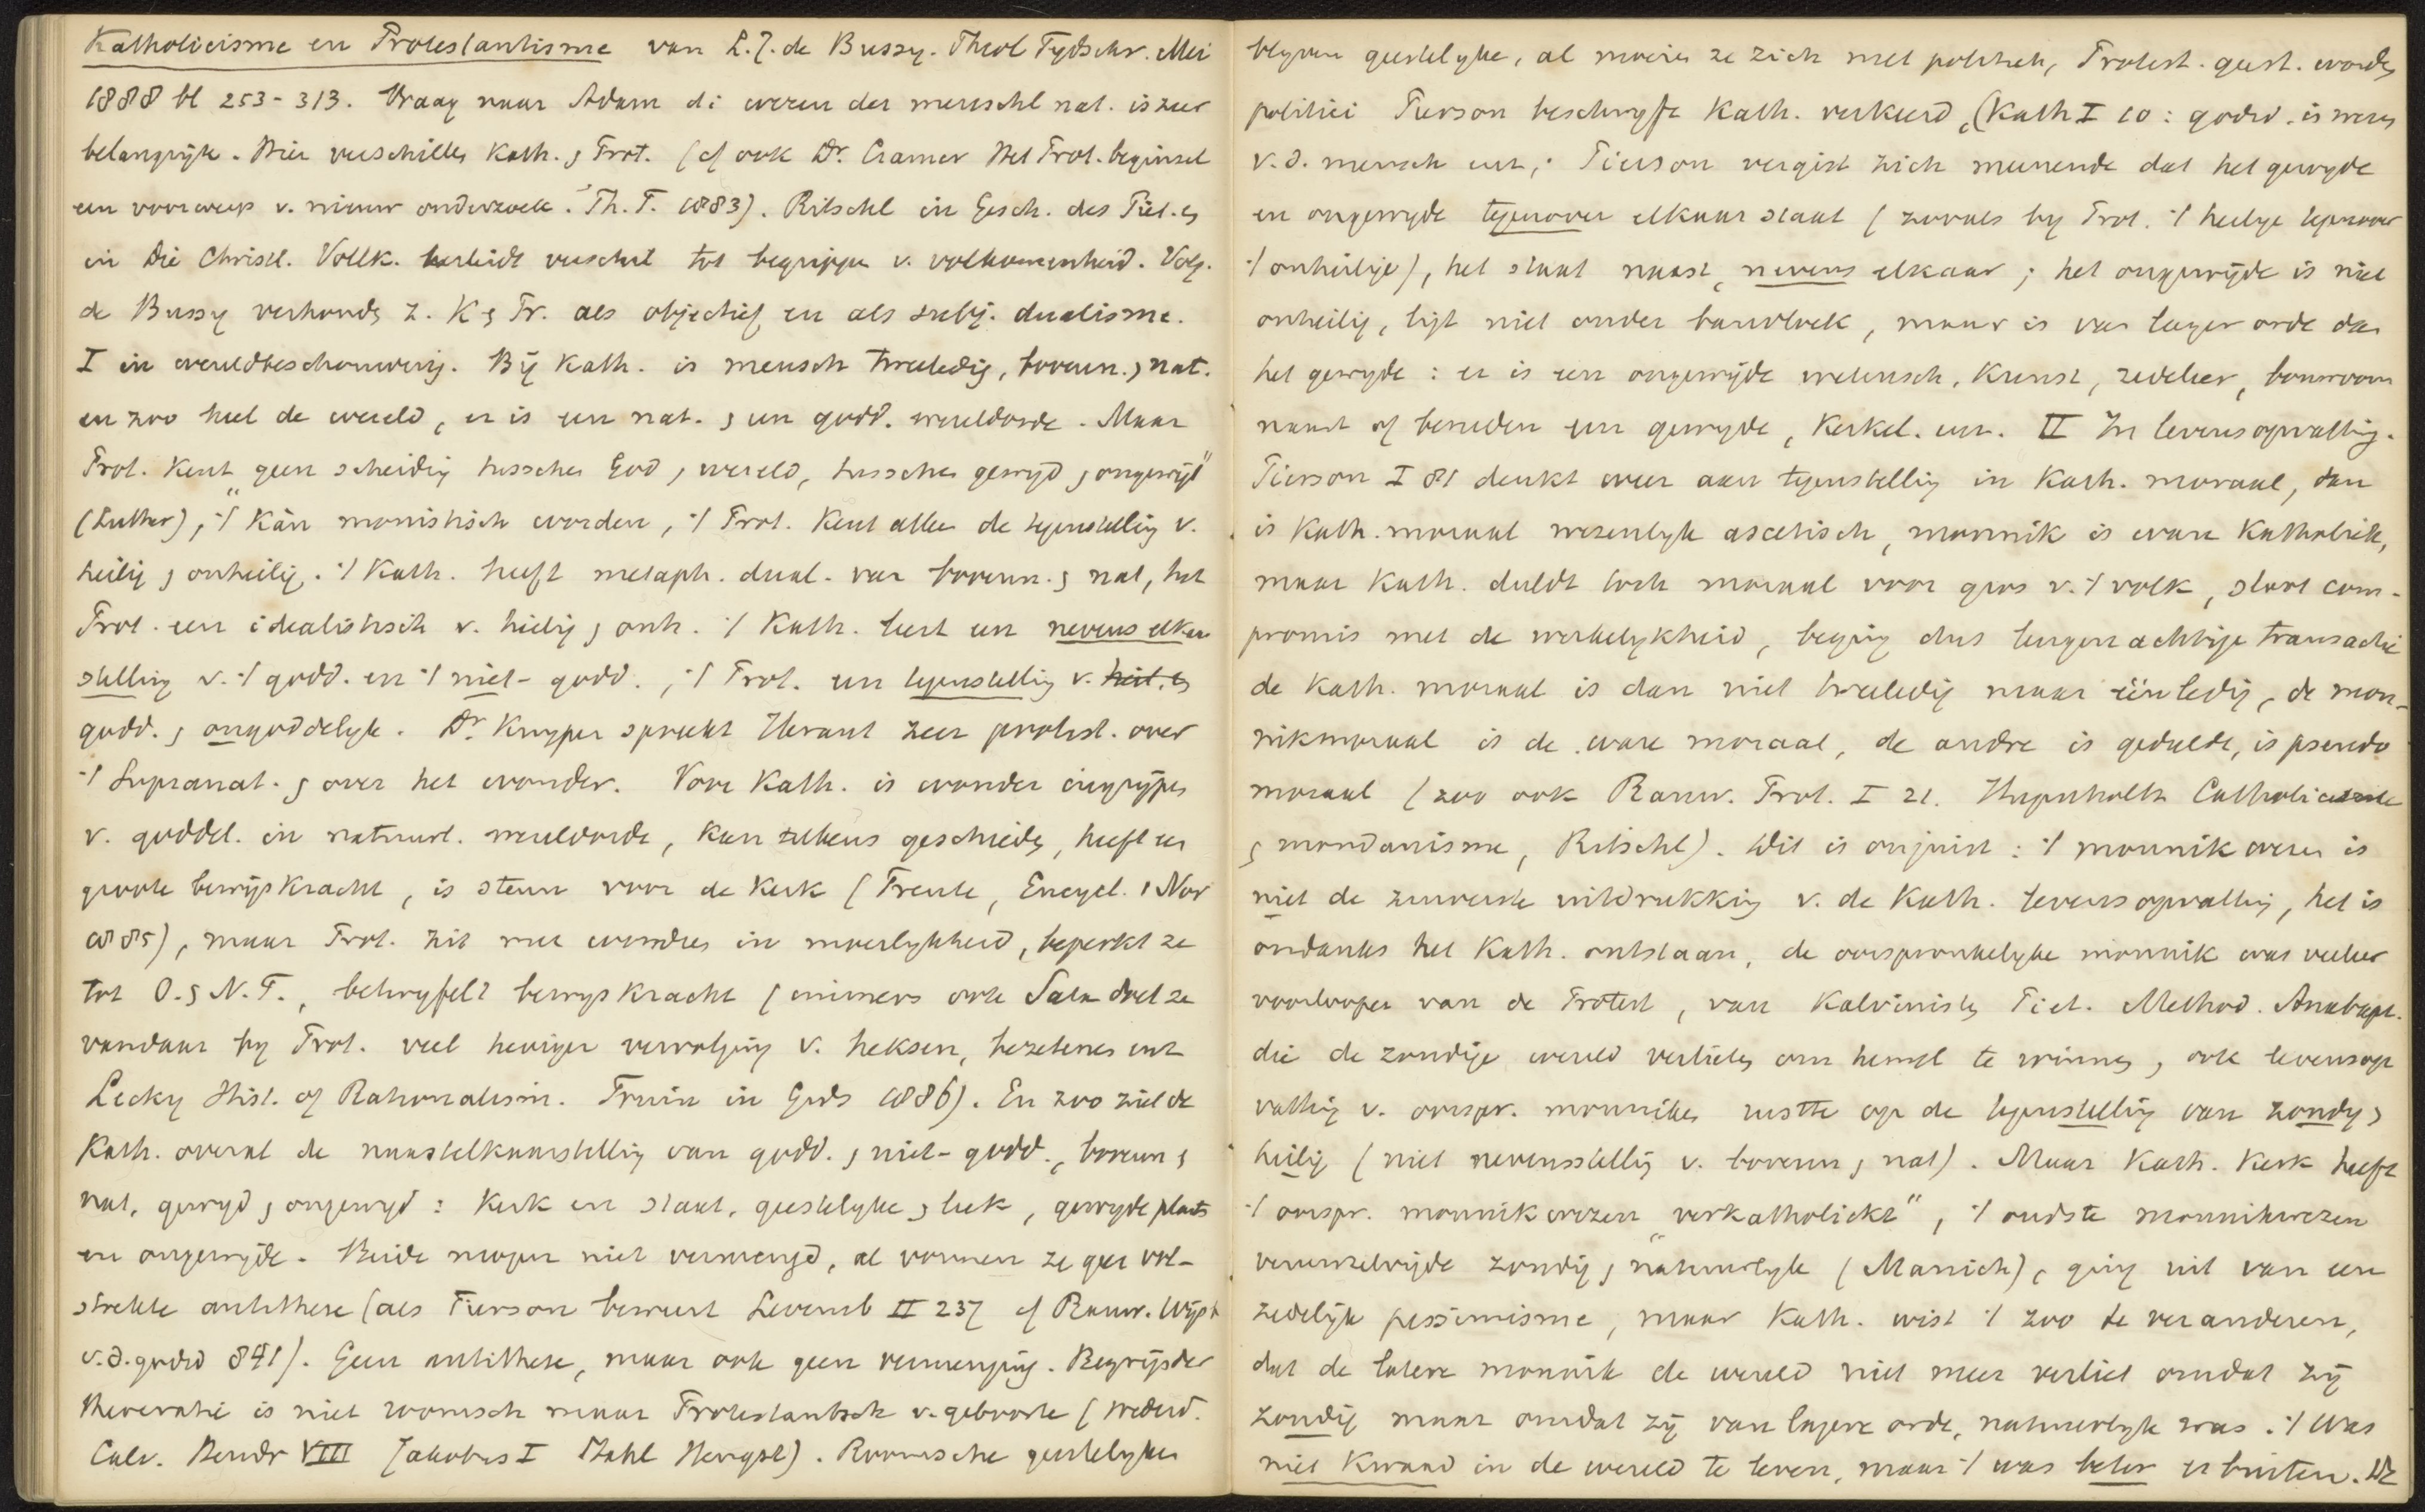 Katholicisme en Protestantisme van L.J. de Bussy. Theol Tydschr. Mei
1888 bl 253-313. Vraag naar Adam di wezen der menschl nat. is zeer
belangrijk. Hier verschillen Kath. & Prot. (cf ook Dr. Cramer Het Prot. beginsel
een voorwerp v. nieuw onderzoek. Th. T. 1883). Ritschl in Gesch. des Piet. en
in Die Christl. Vollk. herleidt verschil tot begrippen v. volkomenheid. Volg.
de Bussy verhouden z. K & Pr. als objectief en als subj. dualisme.
I in wereldbeschouwing. Bij Kath. is mensch tweeledig, bovenn. & nat.
en zoo heel de wereld, er is een nat. & een godd. wereldorde. Maar
Prot. kent geen scheidig tusschen God & wereld, tusschen gewijd & ongewijd"
(Luther), ·/· "kàn monistisch worden, ·/· Prot. kent alleen de tegenstellig v.
heilig & onheilig. ·/· Kath. heeft metaph. dual. van bovenn. & nat, het
Prot. een idealistisch v. heilig & onh. ·/· Kath. leert een nevens elkaar
stelling v. ·/· godd. en ·/· niet-godd., ·/· Prot. een tegenstellig v. heil. en
godd. & ongoddelyk. Dr. Kuyper spreekt Heraut zeer protest. over
·/· Supranat. & over het wonder. Voor Kath. is wonder ingrijpen
v. goddel. in natuurl. wereldorde, kan telkens geschieden, heeft een
groote bewijskracht, is steun voor de Kerk (Trente, Encycl. 1 Nov
1885), maar Prot. zit met wonders in moeilykheid, beperkt ze
tot O. & N.T., betwyfelt bewyskracht (immers ook Satan doet ze
vandaar by Prot. veel heviger vervolging v. heksen, bezetenen enz
Lecky Hist. of Rationalism. Fruin in Gids 1886). En zoo ziet de
Kath. overal de naastelkaarstellig van godd. & niet-godd., bovenn &
nat, gewyd & ongewyd: Kerk en staat, geestelyke & leek, gewyde plaats
en ongewyde. Beide mogen niet vermengd, al vormen ze geen vol-
strekte antithese (als Pierson beweert Levensb II 237 cf Rauw. Wijsb
v.d. godsd 841). Geen antithese, maar ook geen vermenging. Begrijp der
theocratie is niet roomsch maar Protestantsch v. geboorte (wederd.
Calv. Hendr VIII Jakobus I Stahl Hengst). Roomsche geestelyken
blyven geestelyke, al moeien ze zich met politiek, Protest. geest. worden
politici Pierson beschryft Kath. verkeerd, (Kath I 10: godsd. is wezen
v.d. mensch enz, Pierson vergist zich meenende dat het gewyde
en ongewyde tegenover elkaar staat (zooals by Prot. ·/· heilige tegenover
·/· onheilige), het staat naast, nevens elkaar; het ongewijde is niet
onheilig, ligt niet onder banvloek, maar is van lager orde dan
het gewyde: er is een ongewijde wetensch, Kunst, zedeleer, bouwvorm
naast of beneden een gewyde, Kerkel. enz. II In levensopvatting.
Pierson I 81 denkt weer aan tegenstellig in Kath. moraal, dan
is Kath. moraal wezenlyk ascetisch, monnik is ware Katholiek,
maar Kath. duldt toch moraal voor gros v. ·/· volk, sluit com-
promis met de werkelykheid, begaig dus leugenachtige transactie
de Kath. moraal is dan niet tweeledig maar éénledig, de mon-
nikmoraal is de ware moraal, de andre is geduld, is pseudo
moraal (zoo ook Rauw. Prot. I 21. Hugenholtz Catholicisme
& mondanisme, Ritschl). Dit is onjuist: ·/· monnikwezen is
niet de zuiverste uitdrukkig v. de Kath. levensopvattig, het is
ondanks het Kath. ontstaan, de oorspronkelyke monnik was veeleer
voorlooper van de Protest, van Kalvinisten Piet. Method. Anabapt.
die de zondige wereld verlieten om hemel te winnen, ook levensop
vattig v. oorspr. monniken rustte op de tegenstellig van zondig &
heilig (niet nevensstellig v. bovenn & nat). Maar Kath. Kerk heeft
·/· oorspr. monnikwezen "verkatholiekt", ·/· oudste monnikwezen
vereenzelvigde zondig & natuurlyk (Manich), ging uit van een
zedelijk pessimisme, maar Kath. wist ·/· zoo te veranderen,
dat de latere monnik de wereld niet meer verliet omdat zij
zondig maar omdat zij van lagere orde, natuurlyk was. ·/· Was
niet kwaad in de wereld te leven, maar ·/· was beter er buiten. De